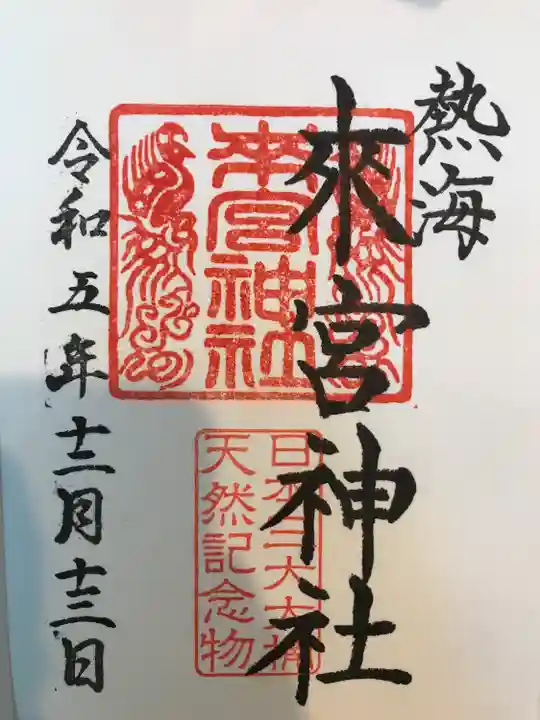 熱海
來宮神社
來宮神社
日本三大大楠
天然記念物
令和五年十二月十三日